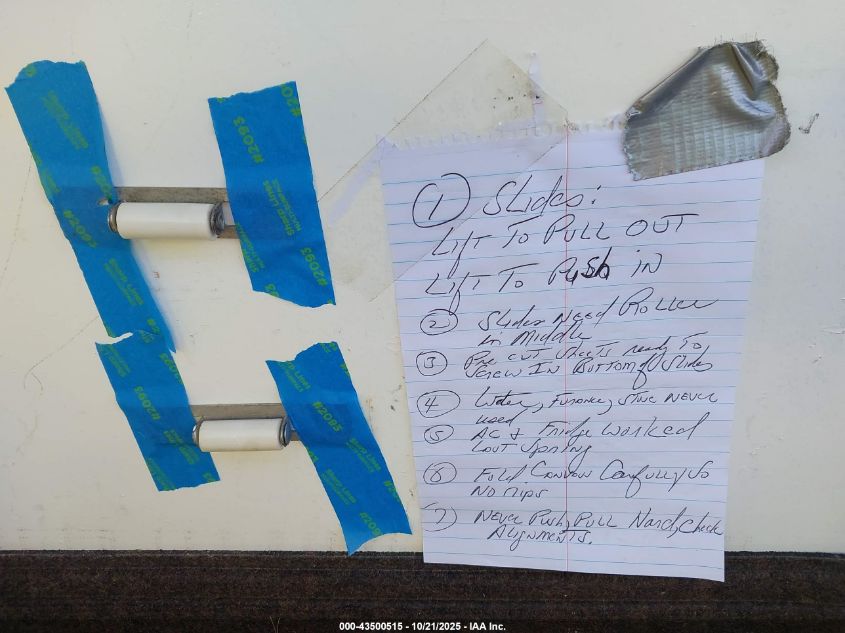 1 Slides:
LIFT TO PULL OUT
LIFT TO PUSH IN
2 Slides Need Roller
in Middle
3 Pre cut sheets ready To
Screw IN Bottom of Slides
4 Water, Furnance, Stove NEVER
used
5 AC & Fridge Worked
Last Spring
6 Fold Canvas Carefully So
NO rips
7) NEVER Push, PULL Hard, Check
Alignments.
#2093
#2093
#2093
#2093
#2093
000-43500515 - 10/21/2025 - IAA Inc.